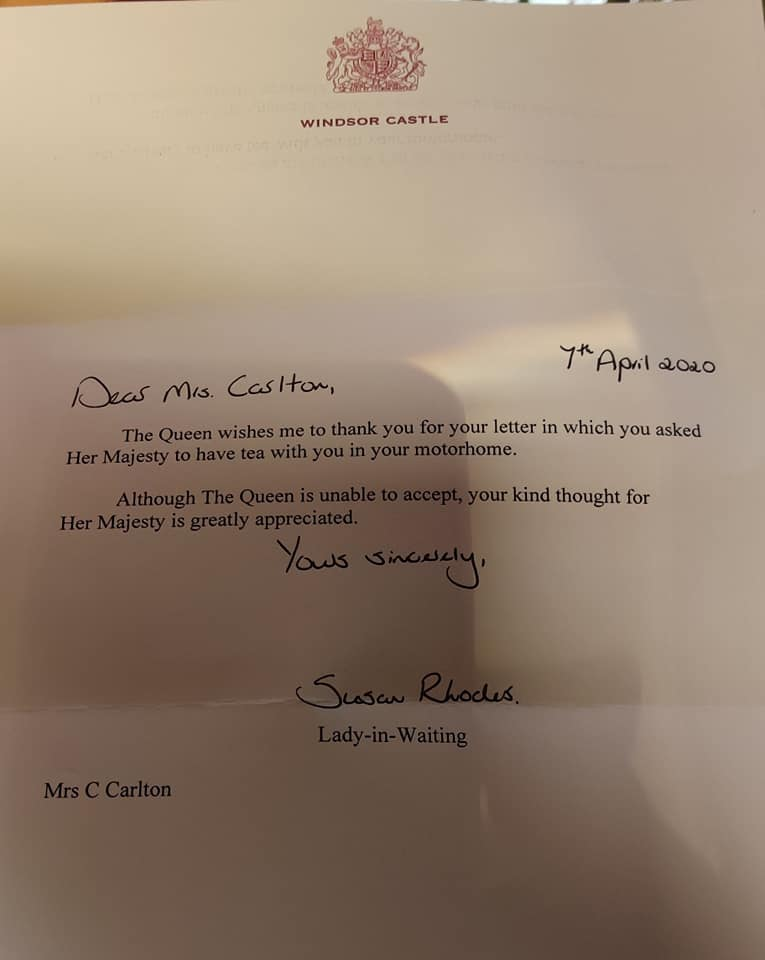 WINDSOR CASTLE
7th April 2020
Dear Mrs. Carlton,
The Queen wishes me to thank you for your letter in which you asked
Her Majesty to have tea with you in your motorhome.
Although The Queen is unable to accept, your kind thought for
Her Majesty is greatly appreciated.
Yours sincerely,
Susan Rhodes.
Lady-in-Waiting
Mrs C Carlton